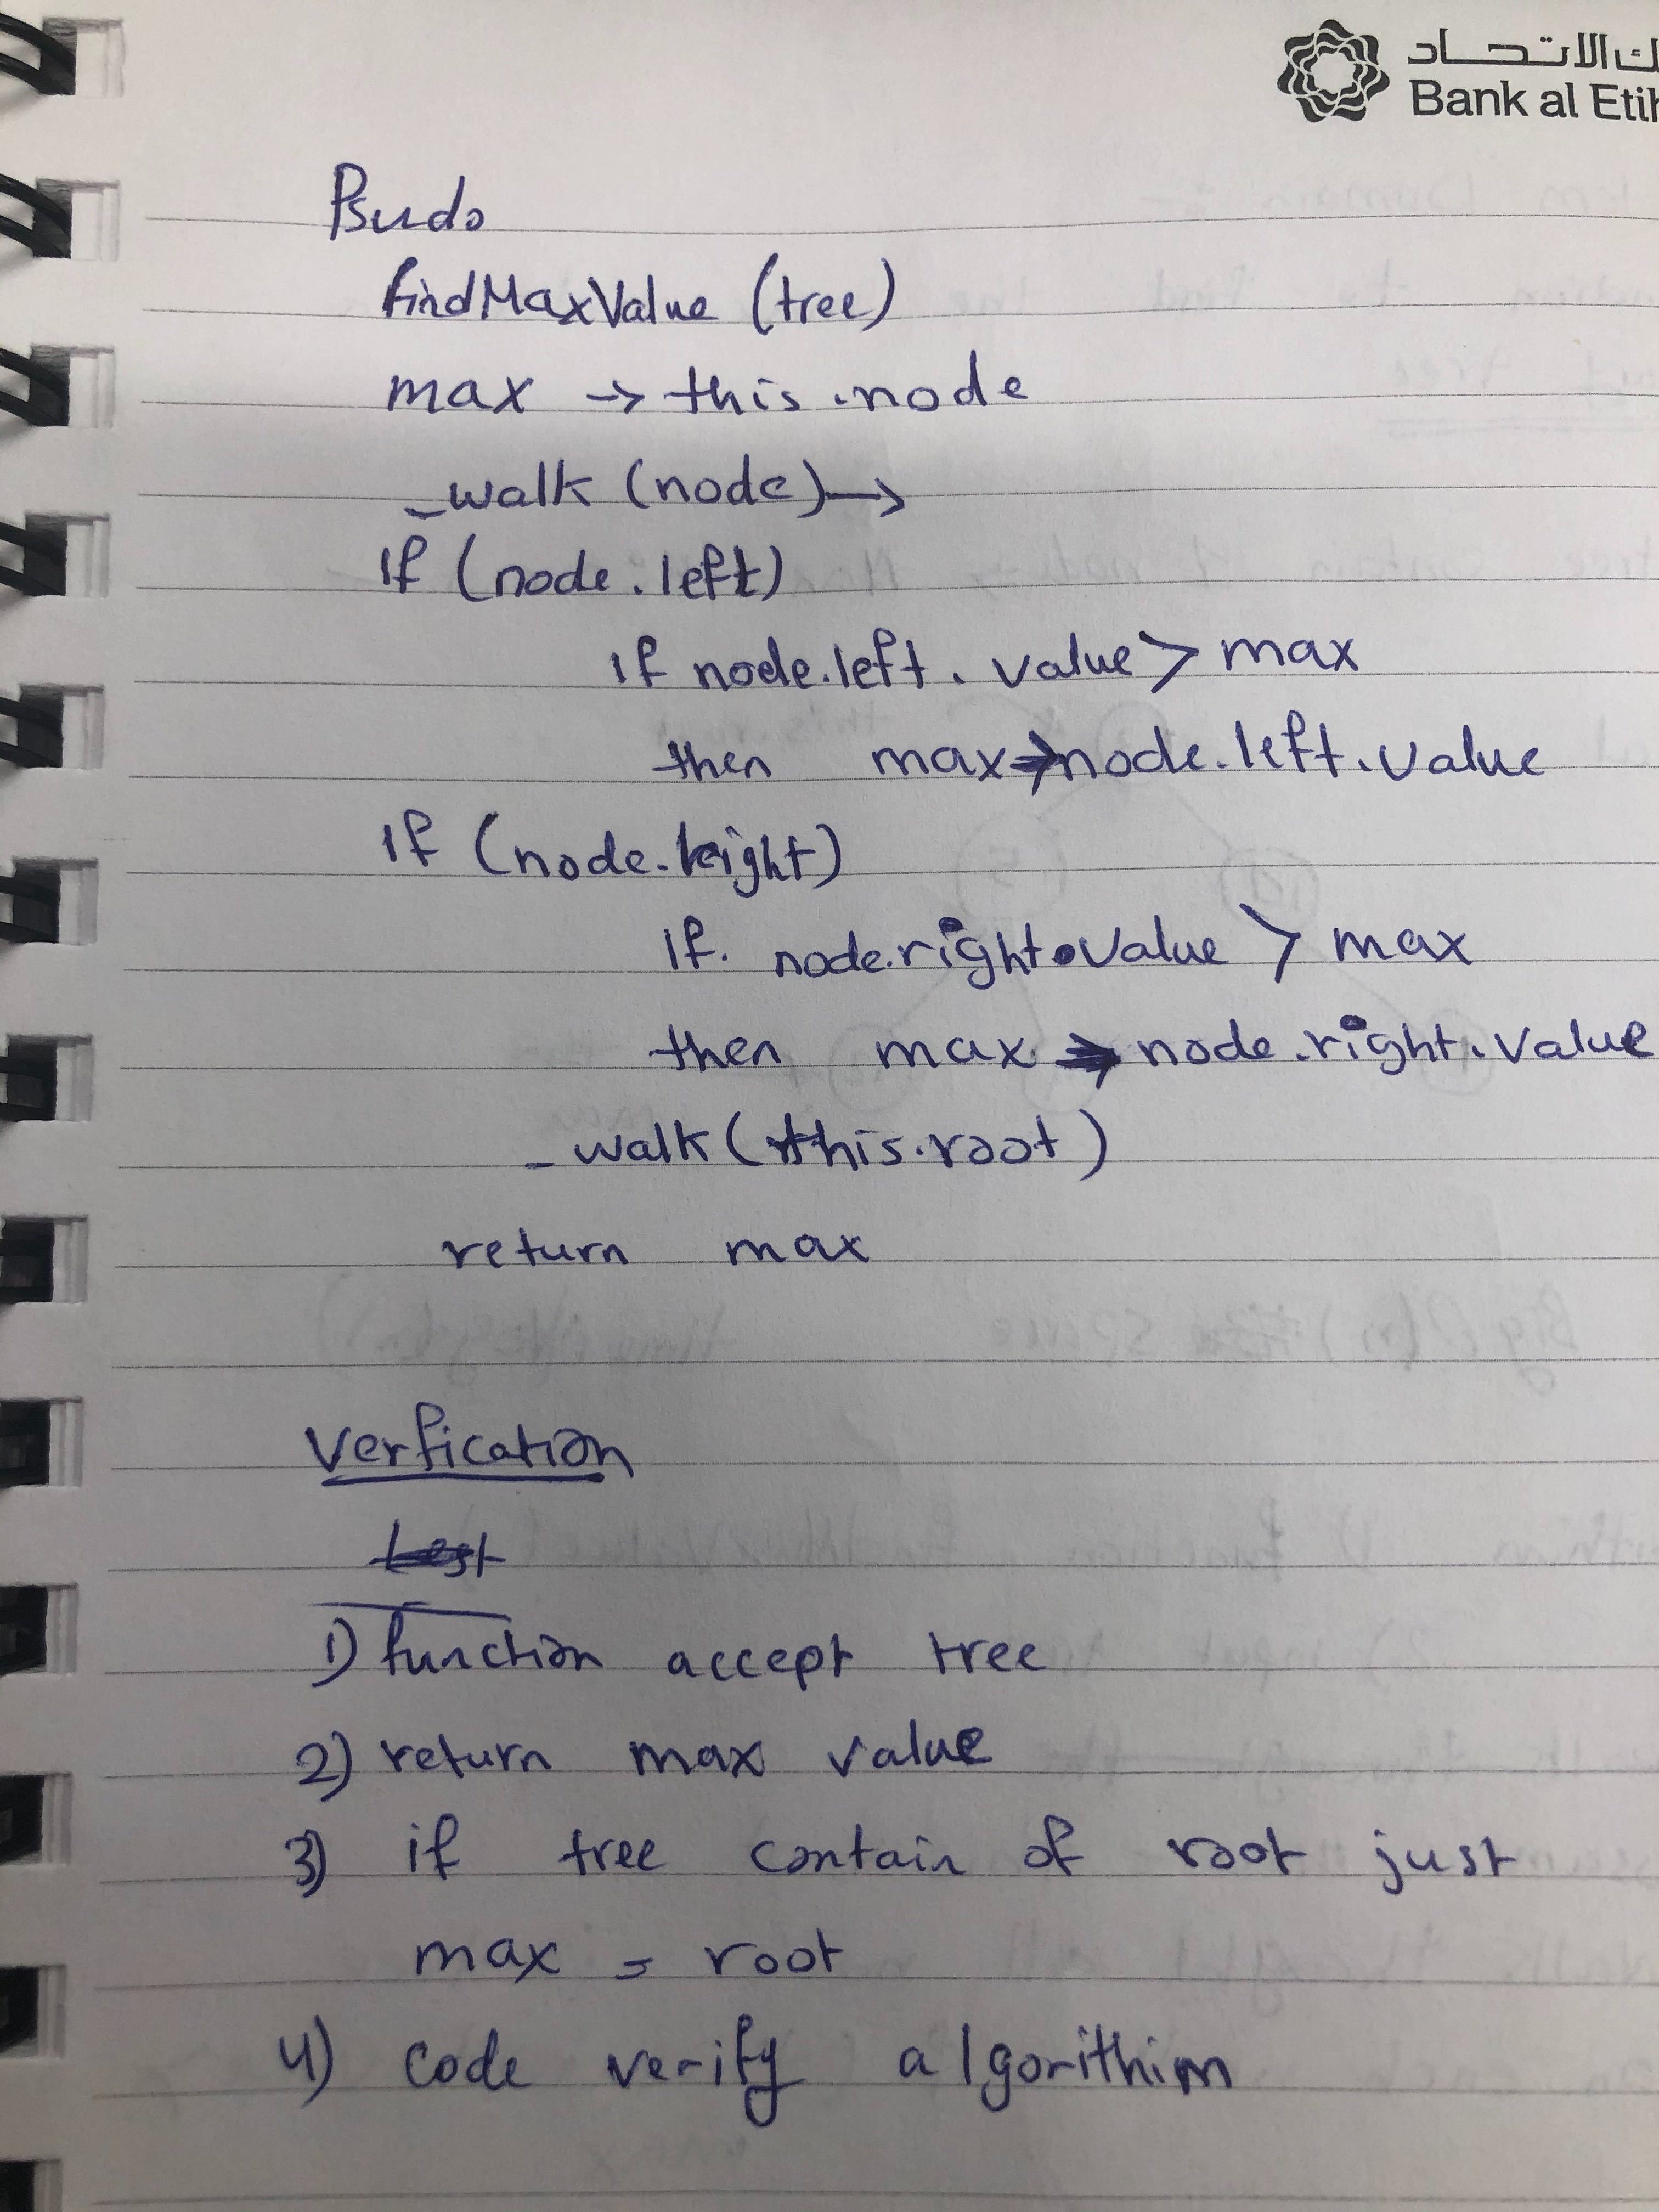 ك الاتحاد
Bank al Etih
Psudo
findMaxValue (tree)
max → this.node
_walk (node) →
if (node.left)
if node.left.value > max
then max → node.left.value
if (node.right)
if. node.right.value > max
then max → node.right.value
_walk (this.root)
return max
Verfication
1) function accept tree
2) return max value
3) if tree contain of root just
max = root
4) code verify algorithim